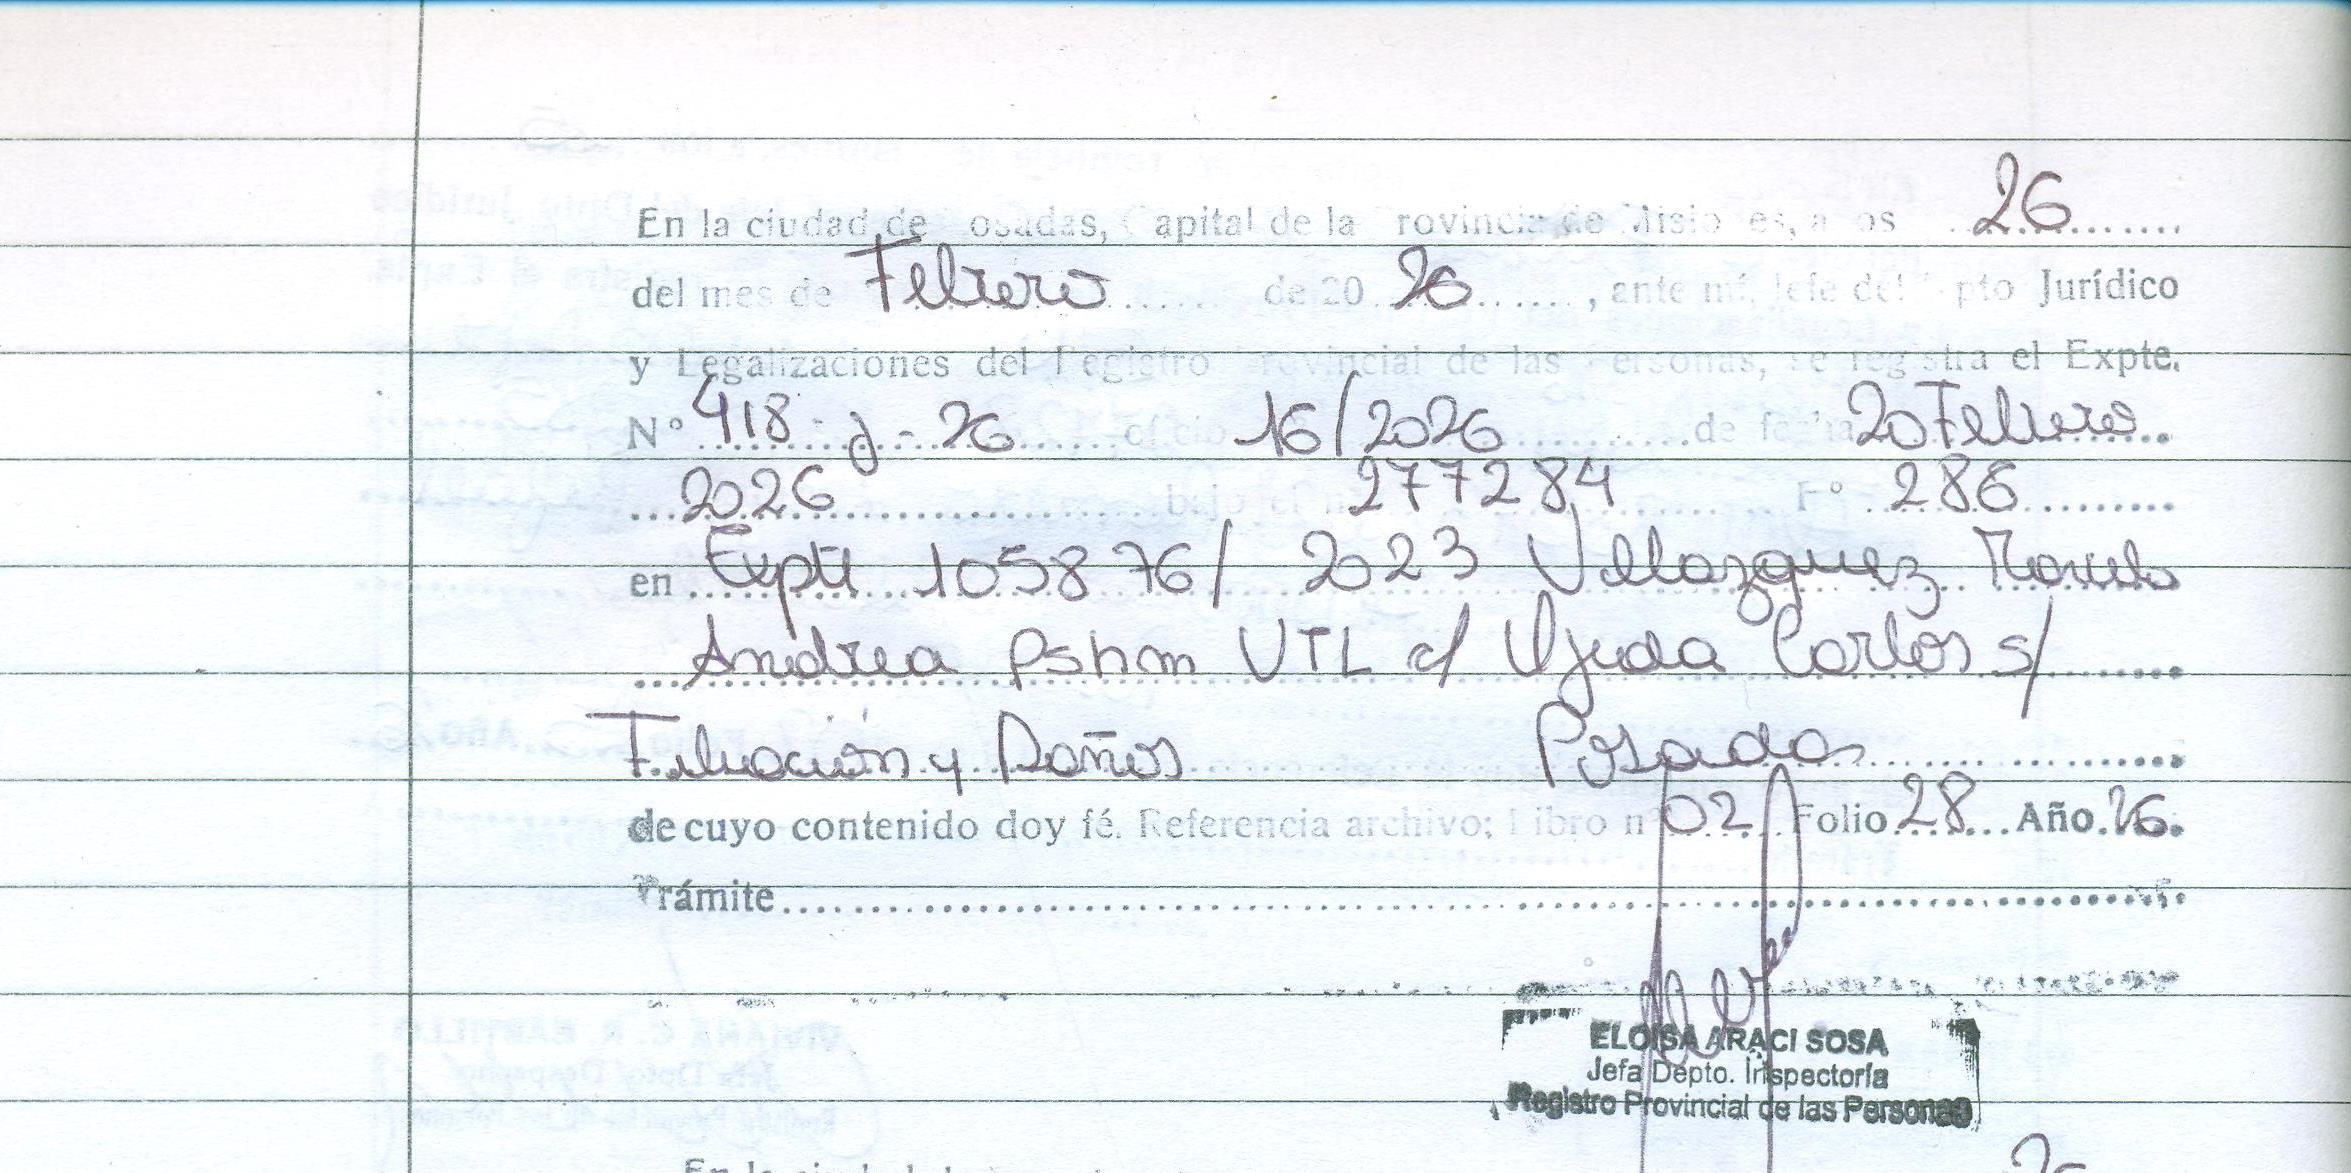 En la ciudad de Posadas, Capital de la Provincia de Misiones, a los 26
del mes de Febrero de 2026, ante mí, Jefe del Dpto Jurídico
y Legalizaciones del Registro Provincial de las Personas, se registra el Expte.
N° 418 - J - 26 oficio 16/2026 de fecha 20 Febrero
2026 bajo el n° 277284 F° 286
en Expte 105876/2023 Velazquez
Andrea PSHM VTL c/ Ojeda Carlos s/
Filiación y Daños Posadas
de cuyo contenido doy fé. Referencia archivo; Libro n° 02 Folio 28 Año 26.
Trámite
ELOISA ARACI SOSA
Jefa Depto. Inspectoría
Registro Provincial de las Personas
En la ciudad
26